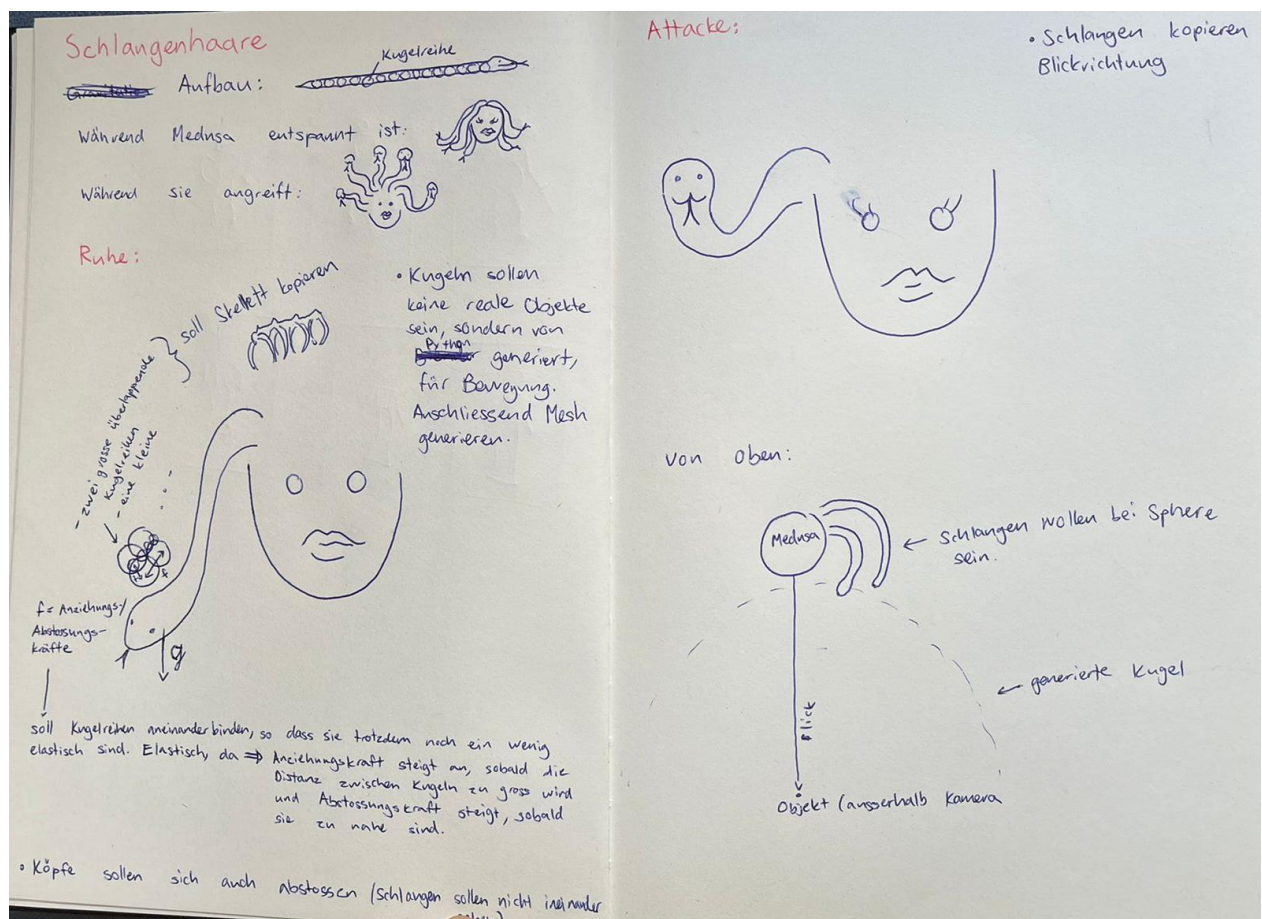 Schlangenhaare
Aufbau:
Kugelreihe
Während Medusa entspannt ist:
Während sie angreift:
Ruhe:
soll Skelett kopieren
- zwei grosse überlappende
Kugelreihen
- eine kleine
• Kugeln sollen
keine reale Objekte
sein, sondern von
Python
generiert,
für Bewegung.
Anschliessend Mesh
generieren.
f = Anziehungs-/
Abstossungs-
kräfte
f
g
soll Kugelreihen aneinanderbinden, so dass sie trotzdem noch ein wenig
elastisch sind. Elastisch, da ⇒ Anziehungskraft steigt an, sobald die
Distanz zwischen Kugeln zu gross wird
und Abstossungskraft steigt, sobald
sie zu nahe sind.
• Köpfe sollen sich auch abstossen (Schlangen sollen nicht ineinander
Attacke:
• Schlangen kopieren
Blickrichtung
von oben:
Medusa
← Schlangen wollen bei Sphere
sein.
← generierte Kugel
Blick
Objekt (ausserhalb Kamera